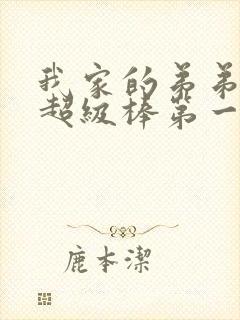 我家的弟弟
超级棒第一
鹿本潔